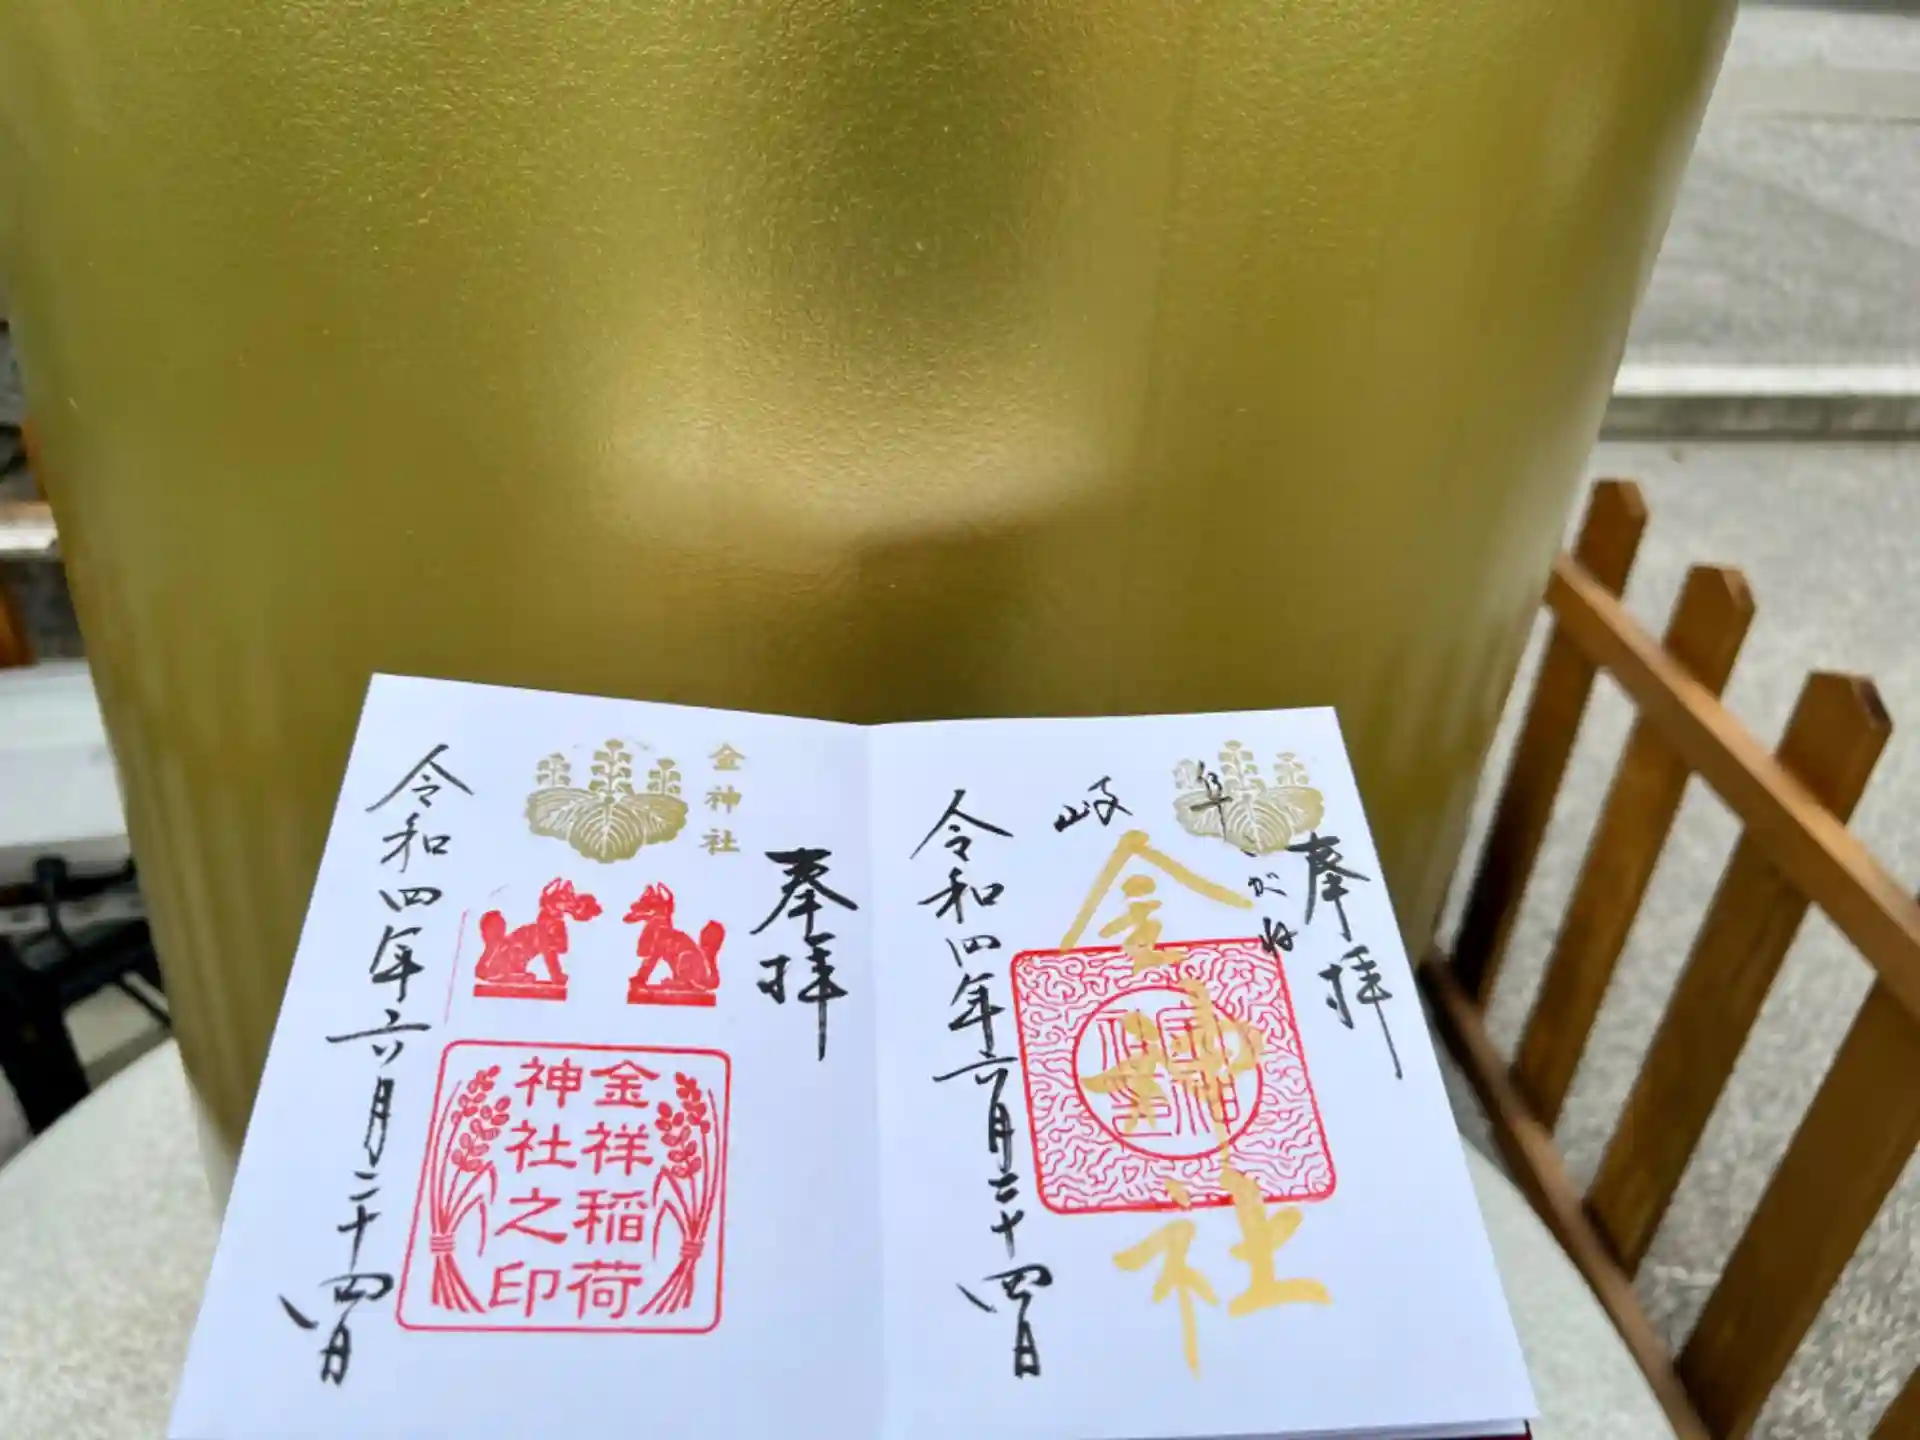 奉拝
岐阜
こがね
金神社
令和四年六月二十四日
奉拝
金神社
金祥稲荷
神社之印
令和四年六月二十四日